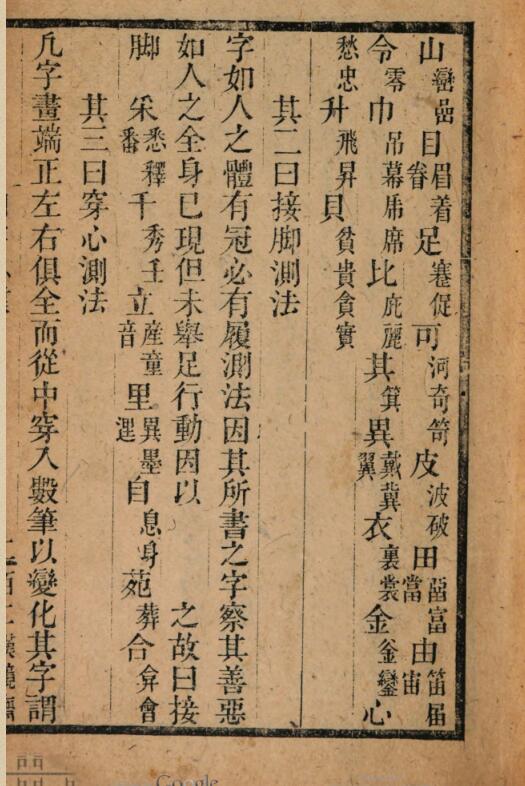 山巒嵒目眉着眷足蹇促可河奇笴皮波破田富當由笛届宙
令零巾吊幕帍席比庇麗其箕異戴冀翼衣裏裳金釜鑾心
愁忠升飛昇貝貧貴貪實
其二曰接脚測法
字如人之體有冠必有履測法因其所書之字察其善惡
如人之全身已現但未舉足行動因以之故曰接
脚釆悉釋番千秀壬立産童音里異墨自息身苑葬合弇會
其三曰穿心測法
凡字畫端正左右俱全而從中穿入數筆以變化其字謂
Google